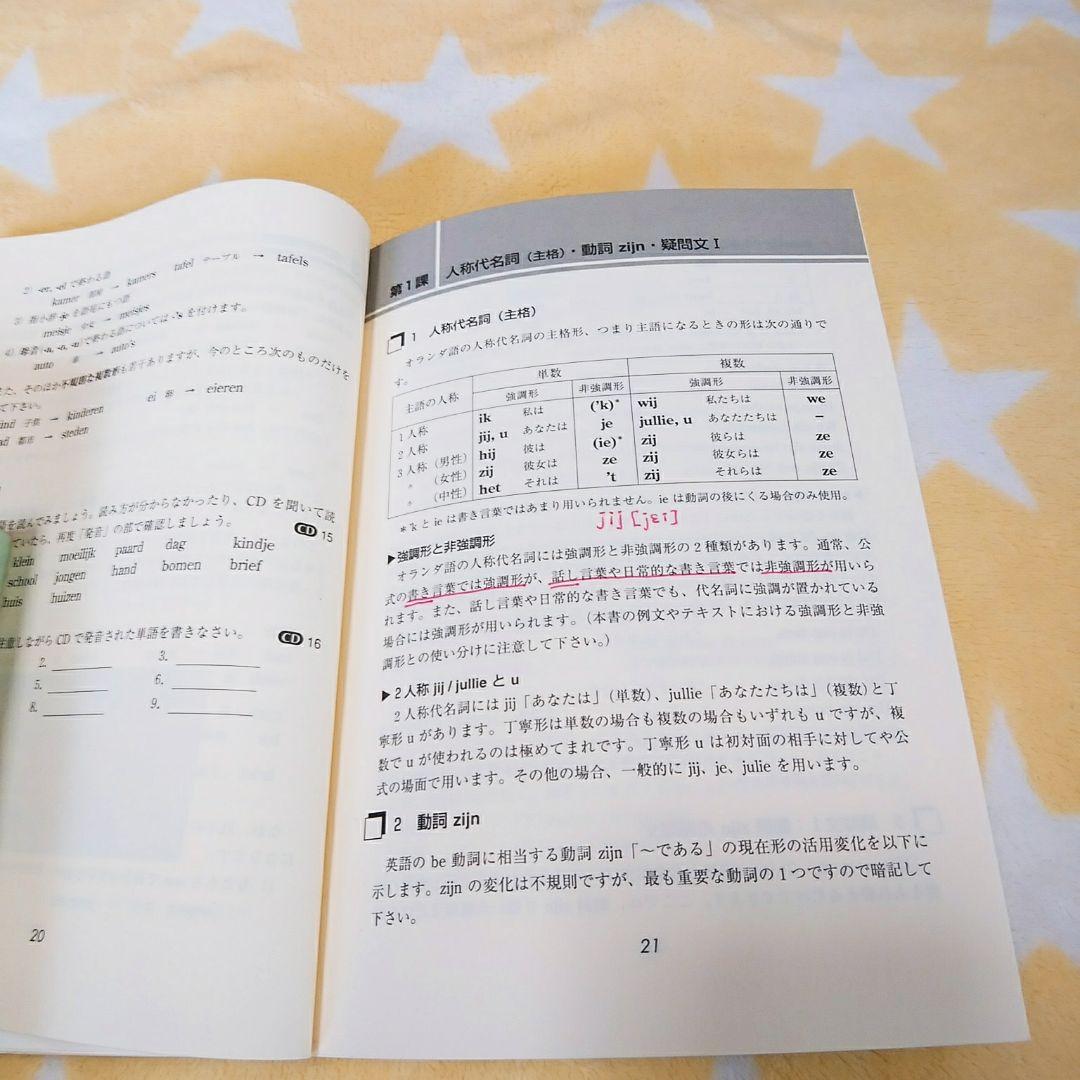 2) -er, -el で終わる語
kamer 部屋 → kamers tafel テーブル → tafels
3) 指小辞 -je を語尾にもつ語
meisje 少女 → meisjes
4) 母音(-a, -o, -u)で終わる語については -'s を付けます。
auto 車 → auto's
また、そのほか不規則な複数形も若干ありますが、今のところ次のものだけを
て下さい。
kind 子供 → kinderen ei 卵 → eieren
ad 都市 → steden
語を読んでみましょう。読み方が分からなかったり、CD を聞いて読
ていたら、再度「発音」の部で確認しましょう。 CD 15
klein moeilijk paard dag kindje
school jongen hand bomen brief
huis huizen
注意しながら CD で発音された単語を書きなさい。 CD 16
2. 3.
5. 6.
8. 9.
20
第1課 人称代名詞(主格)・動詞 zijn・疑問文 I
1 人称代名詞(主格)
オランダ語の人称代名詞の主格形、つまり主語になるときの形は次の通りで
す。
主語の人称 単数 複数
強調形 非強調形 強調形 非強調形
1人称 ik 私は ('k)* wij 私たちは we
2人称 jij, u あなたは je jullie, u あなたたちは −
3人称(男性) hij 彼は (ie)* zij 彼らは ze
〃 (女性) zij 彼女は ze zij 彼女らは ze
〃 (中性) het それは 't zij それらは ze
*'k と ie は書き言葉ではあまり用いられません。ie は動詞の後にくる場合のみ使用。
jij [jɛi]
▶強調形と非強調形
オランダ語の人称代名詞には強調形と非強調形の2種類があります。通常、公
式の書き言葉では強調形が、話し言葉や日常的な書き言葉では非強調形が用いら
れます。また、話し言葉や日常的な書き言葉でも、代名詞に強調が置かれている
場合には強調形が用いられます。(本書の例文やテキストにおける強調形と非強
調形との使い分けに注意して下さい。)
▶2人称 jij / jullie と u
2人称代名詞には jij「あなたは」(単数)、jullie「あなたたちは」(複数)と丁
寧形 u があります。丁寧形は単数の場合も複数の場合もいずれも u ですが、複
数で u が使われるのは極めてまれです。丁寧形 u は初対面の相手に対してや公
式の場面で用います。その他の場合、一般的に jij、je、julie を用います。
2 動詞 zijn
英語の be 動詞に相当する動詞 zijn「〜である」の現在形の活用変化を以下に
示します。zijn の変化は不規則ですが、最も重要な動詞の1つですので暗記して
下さい。
21